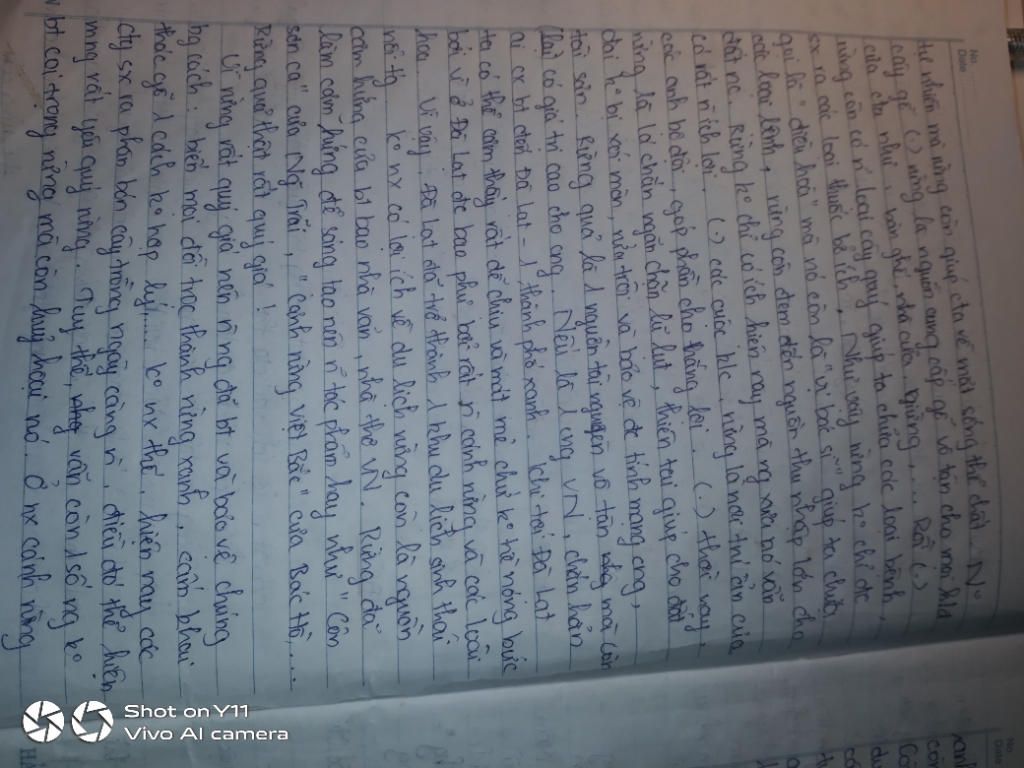 No.
Date
tự nhiên mà rừng còn giúp cta về mặt sống thể chất. N°
cây gỗ (.) rừng là nguồn cung cấp gỗ vô tận cho
của cta như: bàn ghế, nhà cửa, giường,... Rồi (.)
rừng còn có n` loại cây quý giúp ta chữa các loại bệnh,
sx ra các loại thuốc bổ ích. Như vậy rừng k° chỉ đc
gọi là "điều hoà" mà nó còn là "vị bác sĩ" giúp ta chữa
các loại bệnh, rừng còn đem đến nguồn thu nhập lớn cho
đất nc. Rừng k° chỉ có ích hiện nay mà ng xưa nó vẫn
có rất n` ích lợi. (.) các cuộc k/c, rừng là nơi trú ẩn của
các anh bộ đội, góp phần cho thắng lợi. (.) thời nay,
rừng là lá chắn ngăn chặn lũ lụt, thiên tai giúp cho đất
đai k° bị xói mòn, rửa trôi và bảo vệ đc tính mạng cng,
tài sản. Rừng quả là 1 nguồn tài nguyên vô tận mà còn
có giá trị cao cho cng. Nói là 1 cng VN, chắc hẳn
ai cx bt đến Đà Lạt - 1 thành phố xanh. Khi tới Đà Lạt
ta có thể cảm thấy rất dễ chịu và mát mẻ chứ k° hề nóng bức
bởi vì ở Đà Lạt đc bao phủ bởi rất n` cánh rừng và các loài
hoa. Vì vậy, Đà Lạt đã trở thành 1 khu du lịch sinh thái
nổi tg. K° nx có lợi ích về du lịch rừng còn là nguồn
cảm hứng của bt bao nhà văn, nhà thơ VN. Rừng đã
làm cảm hứng để sáng tạo nên n~ tác phẩm hay như "Côn
sơn ca" của Ng Trãi, "Cảnh rừng Việt Bắc" của Bác Hồ,...
Rừng quả thật rất quý giá!
Vì rừng rất quý giá nên n~ ng đã bt và bảo vệ chúng
bg cách: biến mọi đồi trọc thành rừng xanh, cấm khai
thác gỗ 1 cách k° hợp lý,... k° nx thế, hiện nay các
cty sx ra phân bón cây trồng ngày càng n`, điều đó thể hiện
mng rất yêu quý rừng. Tuy thế, vẫn còn 1 số ng k°
bt coi trọng rừng mà còn huỷ hoại nó. Ở nx cánh rừng
Shot on Y11
Vivo AI camera